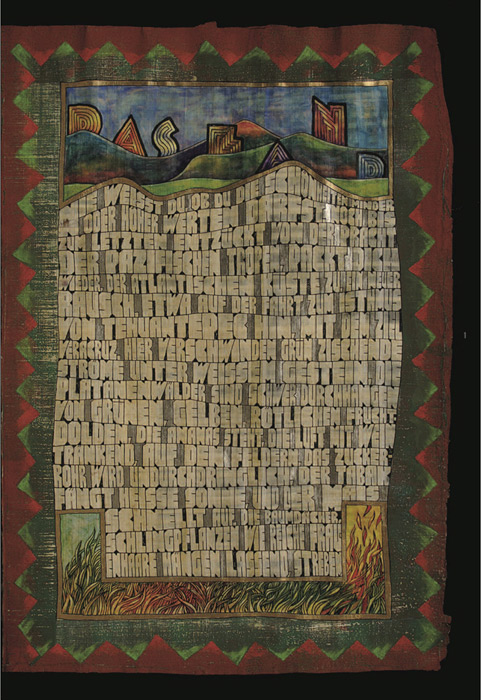 DAS LAND
NIE WEISST DU, OB DU DIE
ODER HÖHER WERTEN DARFST. NOCH BIS
ZUM LETZTEN ENTZÜCKT VON DER PRACHT
DER PAZIFISCHEN TROPEN, PACKT DICH
WIEDER DER ATLANTISCHEN KÜSTE ZU
RAUSCH. ETWA AUF DER FAHRT ZUM ISTHMUS
VON TEHUANTEPEC UND MIT DEM ZUG
VERACRUZ. HIER VERSCHWINDEN GRÜN ZIEHENDE
STRÖME UNTER WEISSEM GESTEIN. DIE
PLATANENWÄLDER SIND SCHWER DURCHHANGEN
VON GRÜNEN, GELBEN, RÖTLICHEN FRUCHT
DOLDEN. DIE ANANAS STEHT, DIE LUFT MIT WEIN
TRÄNKEND, AUF DEN FELDERN. DAS ZUCKER
ROHR WIRD UNDURCHDRINGLICH. DER TABAK
FÄNGT HEISSE SONNE UND DER MAIS
SCHNELLT AUF. HÄNGEN
SCHLINGPFLANZEN, WIE
HAARE HÄNGEN LASSEN.